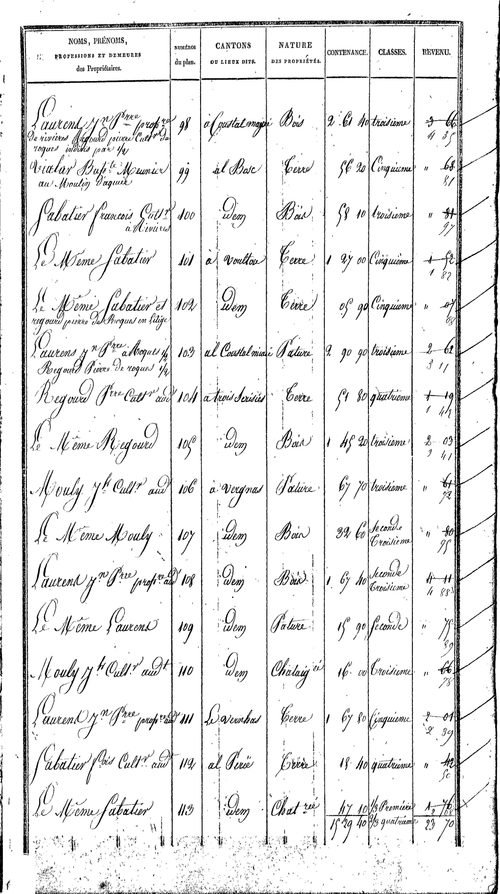 NOMS, PRÉNOMS, PROFESSIONS ET DEMEURES des Propriétaires. NUMÉROS du plan. CANTONS OU LIEUX DITS. NATURE DES PROPRIÉTÉS. CONTENANCE. CLASSES. REVENU.
Laurens Jn Pierre propre 98 Bois 2 61 40 troisième 3 66
de rivières Regourd pierre Cultr de 4 35
roques
Vialar Bapte Meunier 99 al Bosc Terre 56 20 Cinquième " 68
au Moulin 81
Sabatier francois Cultr 100 idem Bois 58 10 troisième " 81
à Rivières 97
Le Même Sabatier 101 à voultou Terre 1 27 00 Cinquième 1 52
1 82
Le Même Sabatier et 102 idem Terre 05 90 Cinquième " 07
regourd pierre de Roques en litige
Laurens Jn Pierre à Roques 1/2 103 Pature 2 90 90 troisième 2 62
Regourd Pierre de roques 1/2 3 11
Regourd Pre Cultr audt 104 à trois Terre 51 80 quatrième 1 19
1 42
Le Même Regourd 105 idem Bois 1 45 20 troisième 2 03
2 41
Mouly Jh Cultr audt 106 à vergnas Pature 67 70 troisième " 61
72
Le Même Mouly 107 idem Bois 32 60 Seconde " 80
Troisième 95
Laurens Jn Pierre propre audt 108 idem Bois 1 67 40 Seconde 4 11
Troisième 4 88
Le Même Laurens 109 idem Pature 15 90 Seconde " 75
89
Mouly Jh Cultr audt 110 idem Chataigé 16 00 Troisième " 66
78
Laurens Jn Pierre propre audt 111 Le vernhas Terre 1 67 80 Cinquième 2 01
2 39
Sabatier fcois Cultr audt 112 Terre 18 40 quatrième " 42
50
Le Même Sabatier 113 idem 47 10 1/3 Première 1 76
15 29 40 2/3 quatrième 23 70